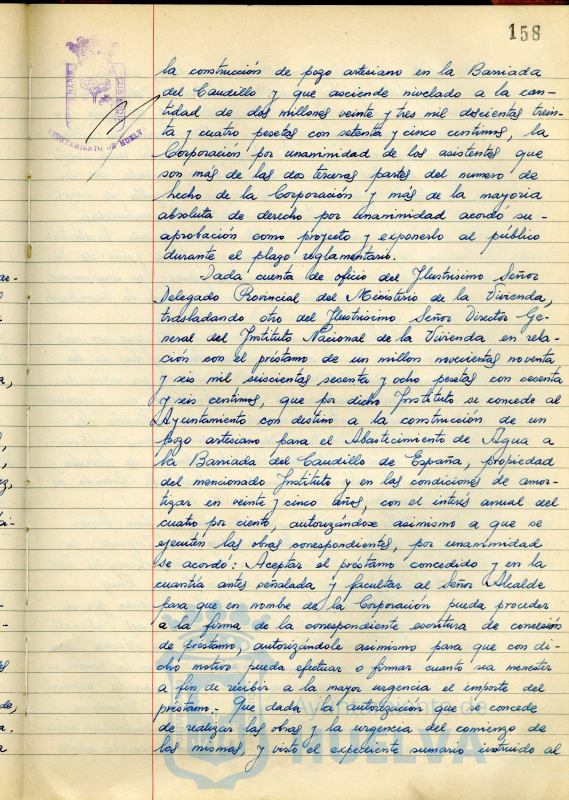 158
AYUNTAMIENTO DE HUELVA
la construcción de pozo artesiano en la Barriada
del Caudillo y que asciende nivelado a la can-
tidad de dos millones veinte y tres mil doscientas trein-
ta y cuatro pesetas con setenta y cinco centimos, la
Corporación por unanimidad de los asistentes que
son más de las dos terceras partes del numero de
hecho de la Corporación y más de la mayoria
absoluta de derecho por unanimidad acordó su-
aprobación como proyecto y exponerlo al público
durante el plazo reglamentario.
Dada cuenta de oficio del Ilustrisimo Señor
Delegado Provincial del Ministerio de la Vivienda,
trasladando otro del Ilustrisimo Señor Director Ge-
neral del Instituto Nacional de la Vivienda en rela-
ción con el préstamo de un millon novecientas noventa
y seis mil seiscientas sesenta y ocho pesetas con sesenta
y seis centimos, que por dicho Instituto se concede al
Ayuntamiento con destino a la construcción de un
pozo artesiano para el Abastecimiento de Agua a
la Barriada del Caudillo de España, propiedad
del mencionado Instituto y en las condiciones de amor-
tizar en veinte y cinco años, con el interés anual del
cuatro por ciento, autorizándose asimismo a que se
ejecuten las obras correspondientes, por unanimidad
se acordó: Aceptar el préstamo concedido y en la
cuantía antes señalada y facultar al Señor Alcalde
para que en nombre de la Corporación pueda proceder
a la firma de la correspondiente escritura de concesión
de préstamo, autorizándole asimismo para que con di-
cho motivo pueda efectuar o firmar cuanto sea menester
a fin de recibir a la mayor urgencia el importe del
préstamo.- Que dada la autorización que se concede
de realizar las obras y la urgencia del comienzo de
las mismas y visto el expediente sumario instruido al
Ayuntamiento de
HUELVA